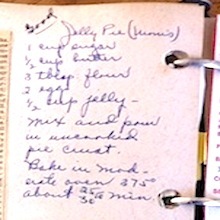 Good
Jelly Pie (Mom's)
1 cup sugar
1/2 cup butter
3 tbsp flour
2 eggs
1/2 cup jelly -
Mix and pour
in uncooked
pie crust.
Bake in mod-
erate oven 375°
about 25 to 30 min.